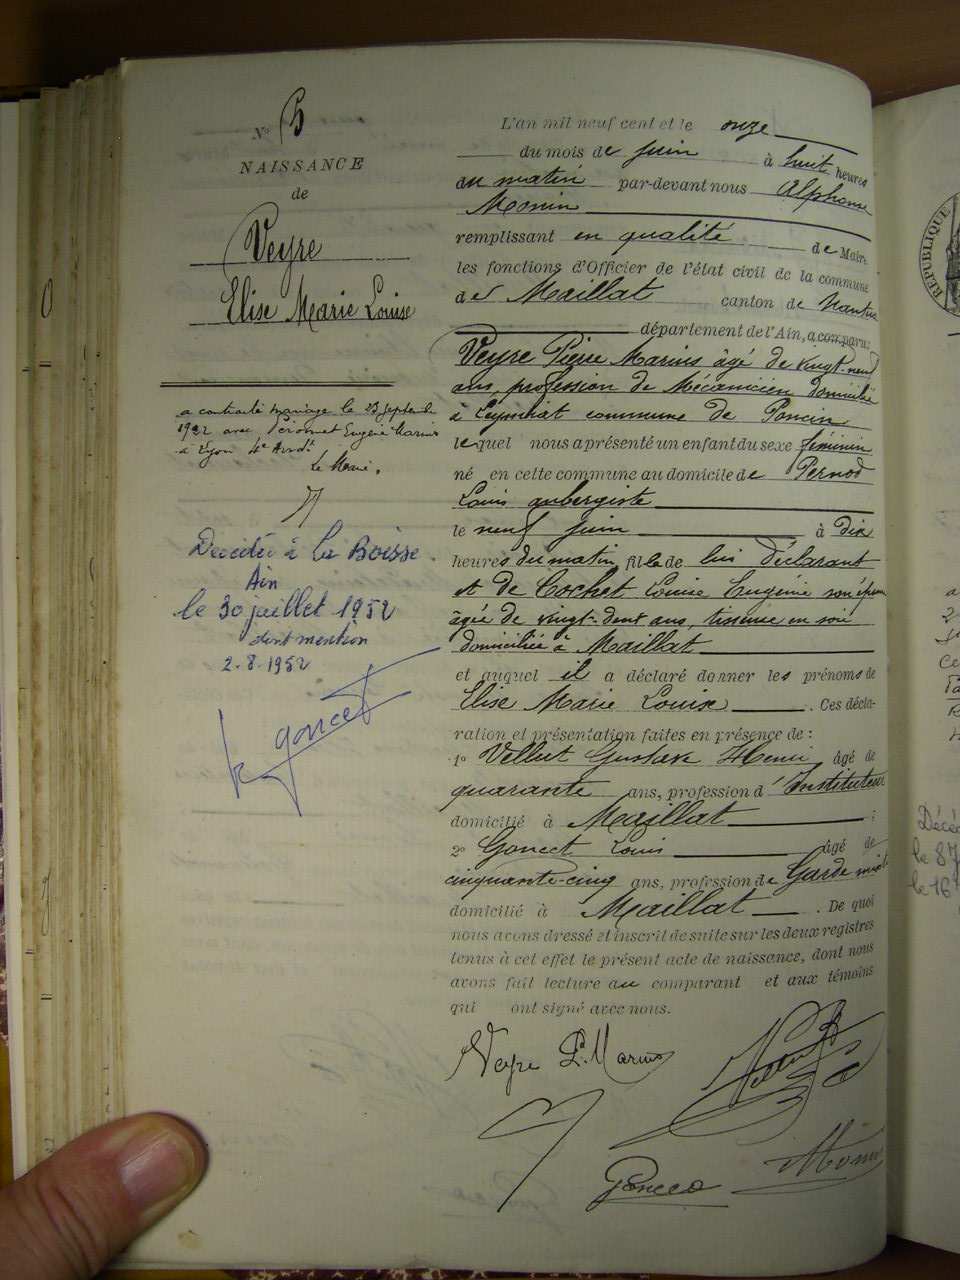 N° 5
NAISSANCE
de
Veyre
Elise Marie Louise
a contracté mariage le 23 septembre
1922 avec Eugène Marius
à Lyon 4e Arrdt
le Maire.
Décédée à La Boisse
Ain
le 30 juillet 1952
dont mention
2.8.1952
goncet
L'an mil neuf cent et le onze
du mois de juin à huit heures
du matin par-devant nous Alphonse
Monin
remplissant en qualité de Maire
les fonctions d'Officier de l'état civil de la commune
de Maillat canton de Nantua
département de l'Ain, a comparu:
Veyre Pierre Marius âgé de vingt-neuf
ans, profession de Mécanicien domicilié
à Leymiat commune de Poncin
lequel nous a présenté un enfant du sexe féminin
né en cette commune au domicile de Pernod
Louis aubergiste
le neuf juin à dix
heures du matin, fille de lui déclarant
et de Cochet Louise Eugénie son épouse
âgée de vingt-deux ans, tisseuse en soie
domiciliée à Maillat
et auquel il a déclaré donner les prénoms de
Elise Marie Louise . Ces décla-
ration et présentation faites en présence de :
1° Vellut Gustave Henri âgé de
quarante ans, profession d'Instituteur
domicilié à Maillat ;
2° Goncet Louis âgé de
cinquante-cinq ans, profession de Garde
domicilié à Maillat . De quoi
nous avons dressé et inscrit de suite sur les deux registres
tenus à cet effet le présent acte de naissance, dont nous
avons fait lecture au comparant et aux témoins
qui ont signé avec nous.
Veyre P. Marius
Vellut
Goncet
Monin
REPUBLIQUE
Décé
le 87
le 16